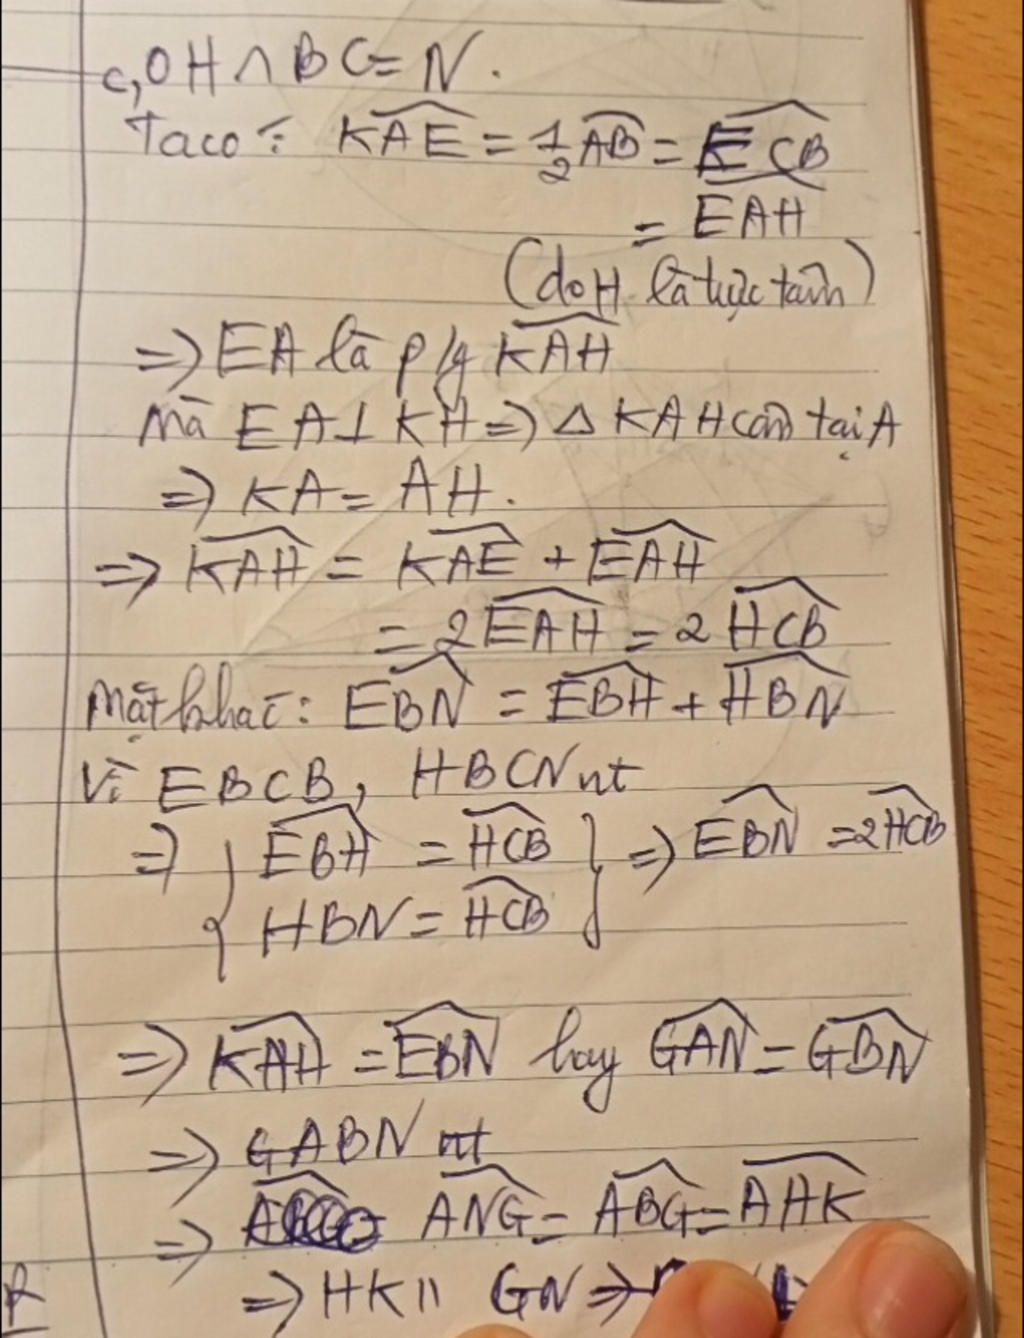 c, OH ∩ BC = N.
Ta có: KAE = 1/2 AB = ECB
= EAH
(do H là trực tâm)
=> EA là p/g KAH
Mà EA ⊥ KH => Δ KAH cân tại A
=> KA = AH.
=> KAH = KAE + EAH
= 2 EAH = 2 HCB
Mặt khác: EBN = EBH + HBN
Vì EBCB, HBCN nt
=> { EBH = HCB } => EBN = 2HCB
{ HBN = HCB }
=> KAH = EBN hay GAN = GBN
=> GABN nt
=> ANG = ABG = AHK
=> HK // GN =>